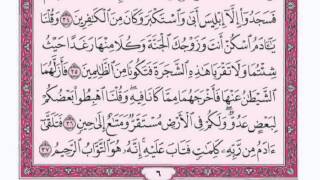 فَسَجَدُوٓا۟ إِلَّآ إِبْلِيسَ أَبَىٰ وَٱسْتَكْبَرَ وَكَانَ مِنَ ٱلْكَٰفِرِينَ ٣٤ وَقُلْنَا
يَٰٓـَٔادَمُ ٱسْكُنْ أَنتَ وَزَوْجُكَ ٱلْجَنَّةَ وَكُلَا مِنْهَا رَغَدًا حَيْثُ
شِئْتُمَا وَلَا تَقْرَبَا هَٰذِهِ ٱلشَّجَرَةَ فَتَكُونَا مِنَ ٱلظَّٰلِمِينَ ٣٥ فَأَزَلَّهُمَا
ٱلشَّيْطَٰنُ عَنْهَا فَأَخْرَجَهُمَا مِمَّا كَانَا فِيهِ وَقُلْنَا ٱهْبِطُوا۟ بَعْضُكُمْ
لِبَعْضٍ عَدُوٌّ وَلَكُمْ فِى ٱلْأَرْضِ مُسْتَقَرٌّ وَمَتَٰعٌ إِلَىٰ حِينٍ ٣٦ فَتَلَقَّىٰٓ
ءَادَمُ مِن رَّبِّهِۦ كَلِمَٰتٍ فَتَابَ عَلَيْهِ إِنَّهُۥ هُوَ ٱلتَّوَّابُ ٱلرَّحِيمُ ٣٧
٦